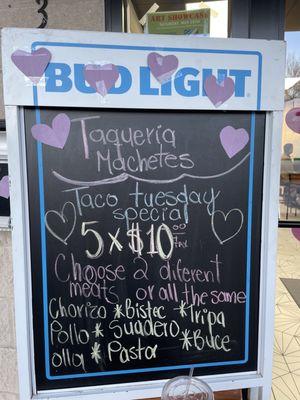 ART SHOWCASE
BUD LIGHT
Taqueria
Machetes
Taco tuesday
special
5 x $10.00
+ tax
Choose 2 different
meats or all the same
Chorizo *Bistec *Tripa
Pollo * Suadero *Buce
olla * Pastor